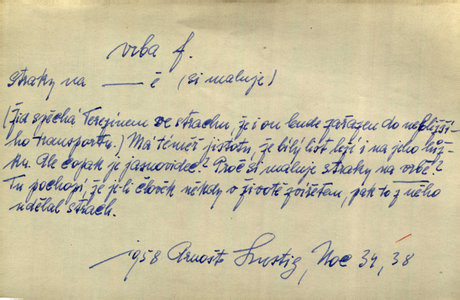 vrba f.
straky na ___ě (si maluje)
(Žid spěchá Terezínem ve strachu, že i on bude zařazen do nejbližší-
ho transportu.) Má téměř jistotu, že bílý lístek leží i na jeho lůž-
ku. Ale copak je jasnovidec? Proč si maluje straky na vrbě?
Tu pochopí, že je-li člověk někdy v životě zvířetem, pak to z něho
udělal strach.
1958 Arnošt Lustig, Noc 34, 38